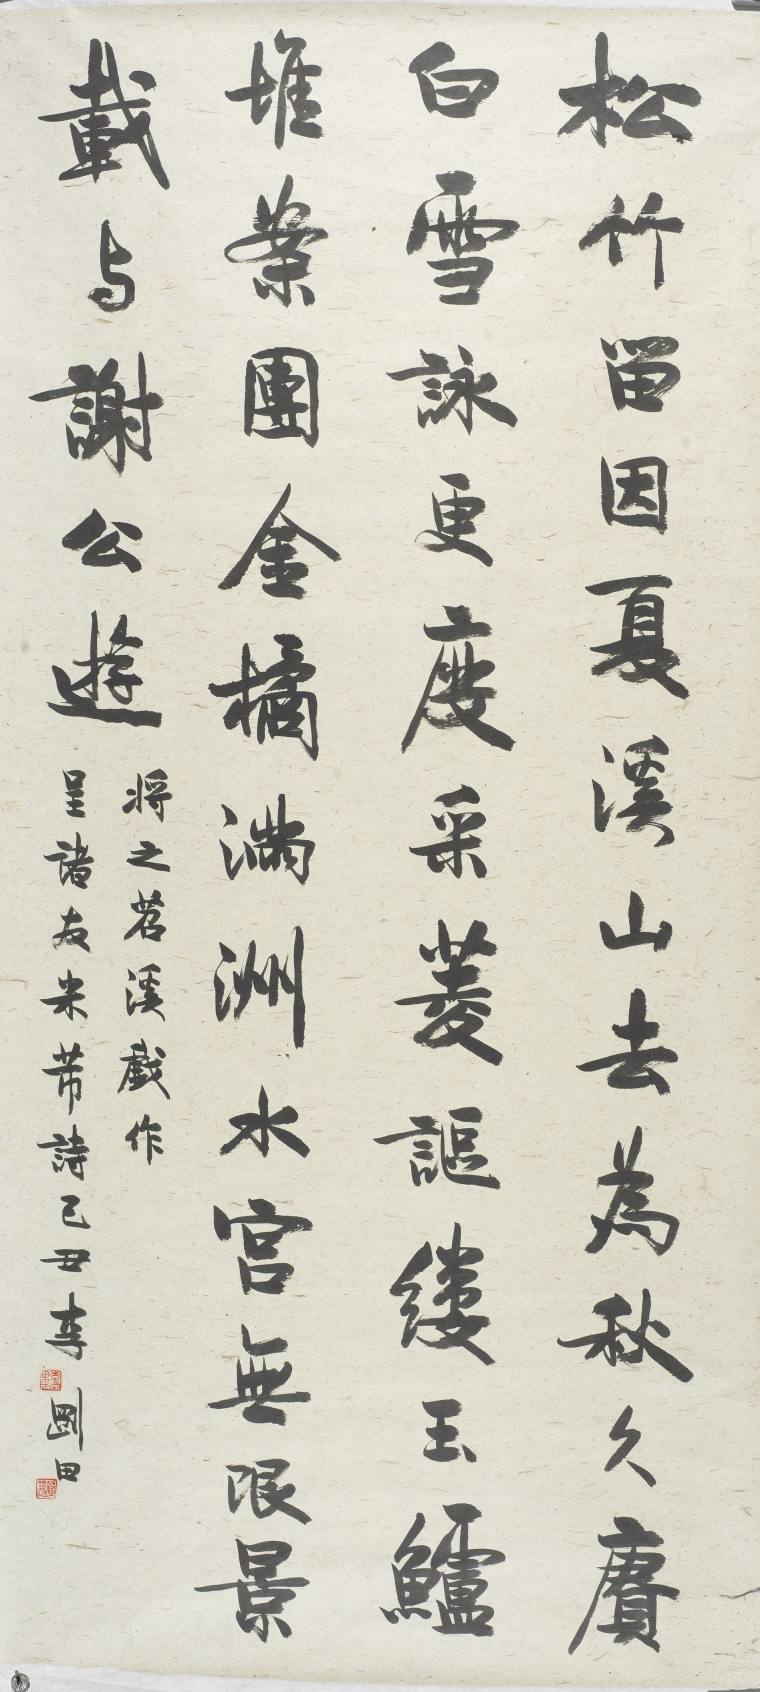 松竹留因夏溪山去為秋久賡
白雪詠更度采菱謳縷玉鱸
堆案團金橘滿洲水宮無限景
載与謝公遊
將之苕溪戲作
呈諸友米芾詩己丑李剛田